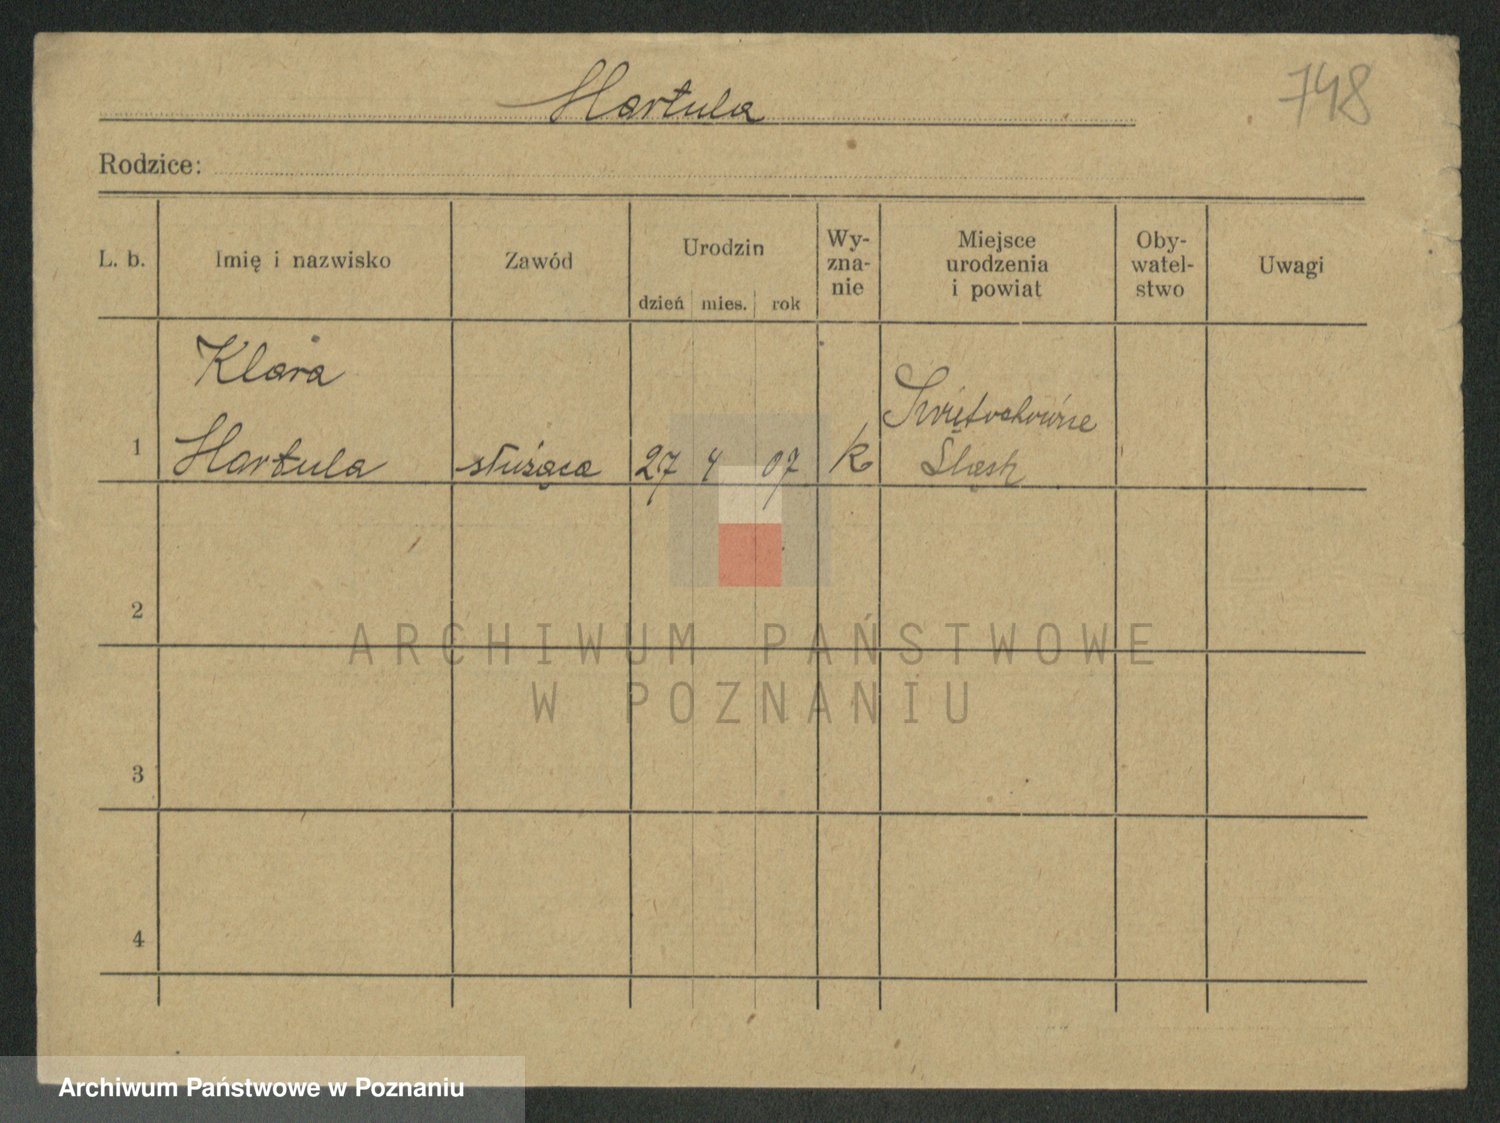 Hartula
748
Rodzice:
L. b.
Imię i nazwisko
Zawód
Urodzin
dzień mies. rok
Wy-
zna-
nie
Miejsce
urodzenia
i powiat
Oby-
watel-
stwo
Uwagi
1
Klara
Hartula
służąca
27 4 07
k
Świętochowne
Śląsk
2
3
4
ARCHIWUM PAŃSTWOWE
W POZNANIU
Archiwum Państwowe w Poznaniu